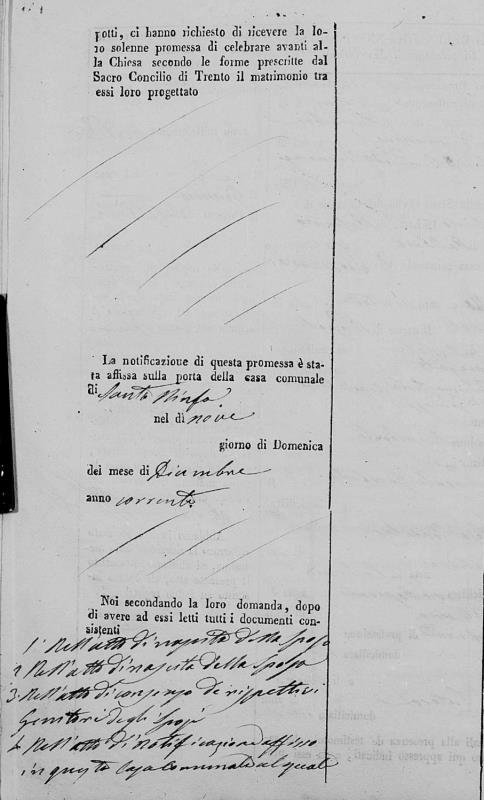 potti, ci hanno richiesto di ricevere la lo-
ro solenne promessa di celebrare avanti al-
la Chiesa secondo le forme prescritte dal
Sacro Concilio di Trento il matrimonio tra
essi loro progettato
La notificazione di questa promessa è sta-
ta affissa sulla porta della casa comunale
di Santa Ninfa
nel dì nove
giorno di Domenica
del mese di Dicembre
anno corrente
Noi secondando la loro domanda, dopo
di avere ad essi letti tutti i documenti con-
sistenti
1° Nell'atto di nascita dello sposo
2 Nell'atto di nascita della sposa
3. Nell'atto di consenso de rispettivi
Genitori degli sposi
4 Nell'atto di Notificazione affisso
in questa Casa Comunale al quale